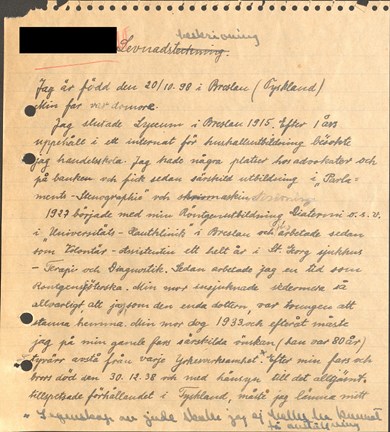 beskrivning
Levnadsteckning.
Jag är född den 20/10.98 i Breslau (Tyskland)
Min far var domare.
Jag slutade Lyceum i Breslau 1915. Efter 1 års
uppehåll i ett internat för hushållsutbildning besökte
jag handelsskola. Jag hade några platser hos advokater och
på banken och fick sedan särskild utbildning i "Parla-
ments-Stenographie" och skrivmaskin
1927 började med min Röntgenutbildning Diatermi o.s.v.
i "Universitäts-Hautklinik" i Breslau och arbetade sedan
som Volontär-Assistentin ett helt år i St. Georg sjukhus
-Terapie och Diagnostik. Sedan arbetade jag en tid som
Röntgensköterska. Min mor insjuknade sedermera så
allvarligt att jag, som den enda dottern, var tvungen att
stanna hemma. Min mor dog 1933 och efteråt måste
jag på min gamle fars särskilda önskan (han var 80 år)
tyvärr avstå från varje Yrkesverksamhet.* Efter min fars och
brors död den 30.12.38 och med hänsyn till det allmänt
tillspetsade förhållandet i Tyskland, måste jag lämna mitt
* I egenskap av jude skulle jag ej heller ha kunnat
få anställning